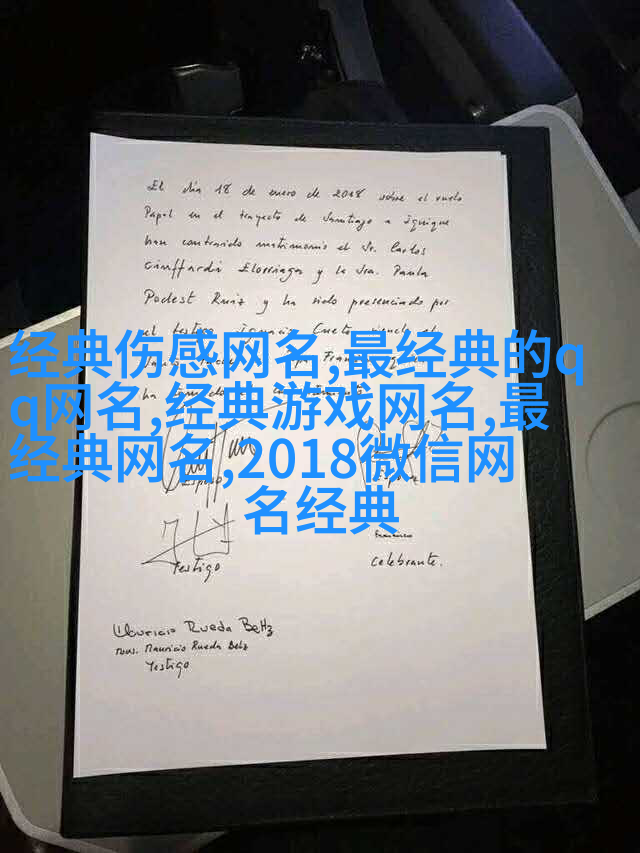 El día 18 de enero de 2018 sobre el vuelo
Papal en el trayecto de Santiago a Iquique
han contraido matrimonio el Sr. Carlos
Ciuffardi Elorriaga y la Sra. Paula
Podest Ruiz y ha sido presenciado por
el testigo Ignacio Cueto
经典伤感网名,最经典的q
q网名,经典游戏网名,最
经典网名,2018微信网
名经典
Esposo
Franciscus
Testigo
Celebrante.
Mauricio Rueda Beltz
Mons. Mauricio Rueda Beltz
Testigo